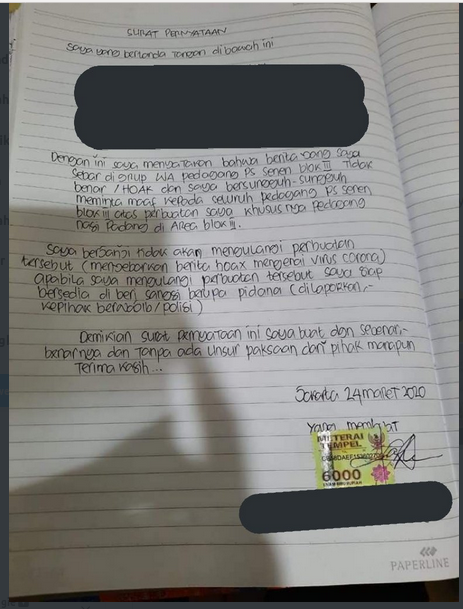 SURAT PERNYATAAN
Saya yang bertanda tangan dibawah ini
Dengan ini saya menyatakan bahwa berita yang saya
sebar di grup WA pedagang PS senen blok III Tidak
benar / HOAX dan saya bersungguh-sungguh
meminta maaf kepada seluruh pedagang PS senen
blok III atas perbuatan saya khususnya pedagang
nasi Padang di Area blok III.
Saya berjanji tidak akan mengulangi perbuatan
tersebut (menyebarkan berita hoax mengenai virus corona)
apabila saya mengulangi perbuatan tersebut saya siap
bersedia di beri sangsi berupa pidana (dilaporkan,-
kepihak berwajib / polisi)
Demikian surat pernyataan ini saya buat dan sebenar-
benarnya dan Tanpa ada unsur paksaan dari pihak manapun
Terima kasih...
Jakarta 24 maret 2020
yang membuat
METERAI
TEMPEL
6000
ENAM RIBU RUPIAH
PAPERLINE